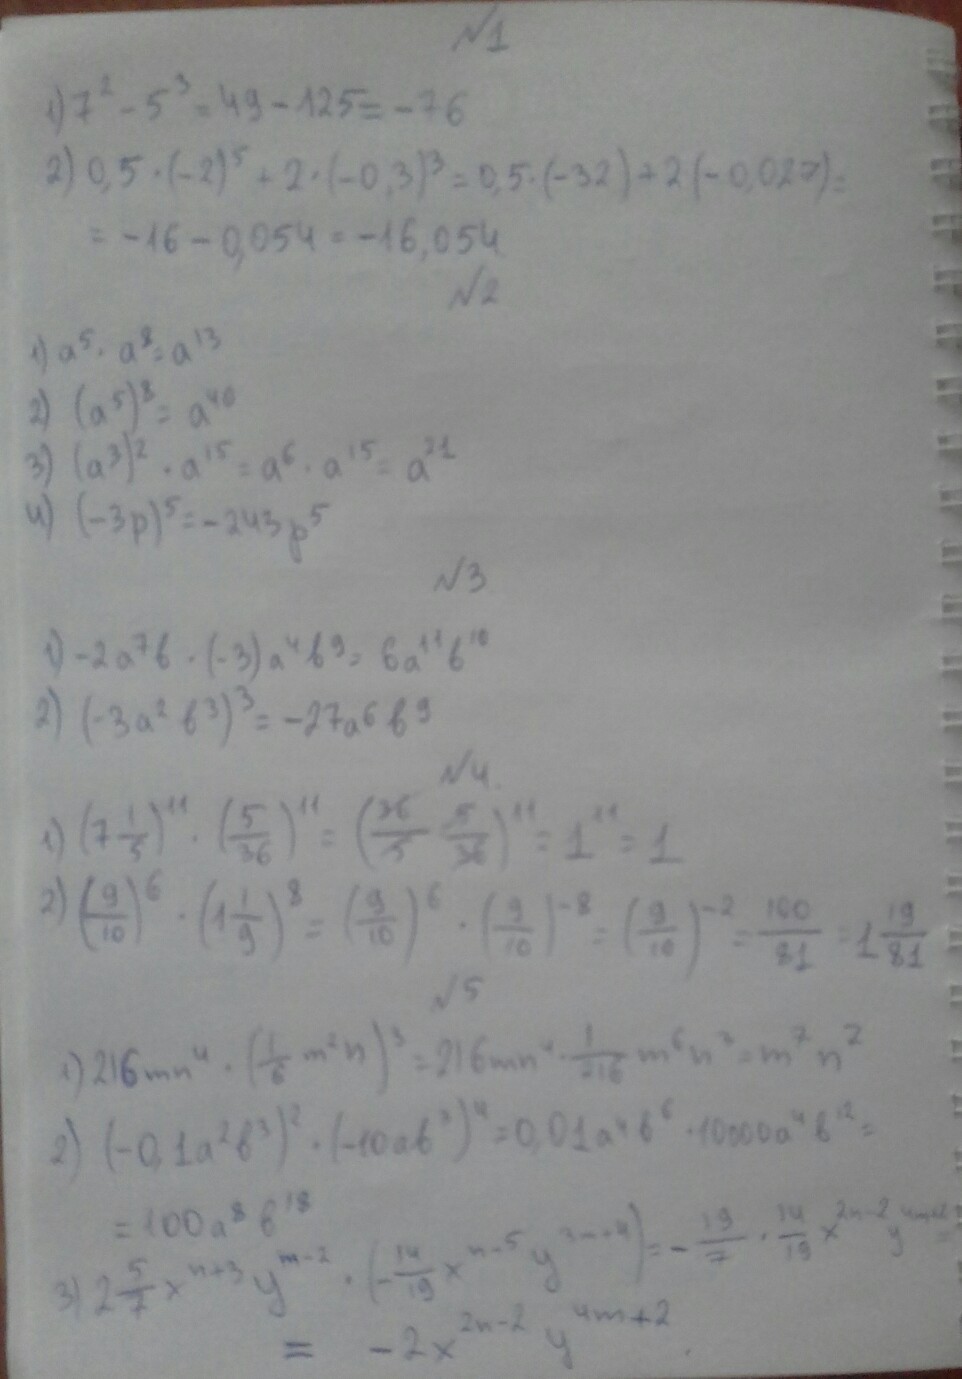 №1
1) 7² - 5³ = 49 - 125 = -76
2) 0,5 · (-2)⁵ + 2 · (-0,3)³ = 0,5 · (-32) + 2 (-0,027) =
= -16 - 0,054 = -16,054
№2
1) a⁵ · a⁸ = a¹³
2) (a⁵)⁸ = a⁴⁰
3) (a³)² · a¹⁵ = a⁶ · a¹⁵ = a²¹
4) (-3p)⁵ = -243p⁵
№3
1) -2a⁷b · (-3)a⁴b⁹ = 6a¹¹b¹⁰
2) (-3a²b³)³ = -27a⁶b⁹
№4
1) (7 1/5)¹¹ · (5/36)¹¹ = (36/5 · 5/36)¹¹ = 1¹¹ = 1
2) (9/10)⁶ · (1 1/9)⁸ = (9/10)⁶ · (9/10)⁻⁸ = (9/10)⁻² = 100/81 = 1 19/81
№5
1) 216mn⁴ · (1/6 m²n)³ = 216mn⁴ · 1/216 m⁶n³ = m⁷n⁷
2) (-0,1a²b³)² · (-10ab³)⁴ = 0,01a⁴b⁶ · 10000a⁴b¹² =
= 100a⁸b¹⁸
3) 2 5/7 xⁿ⁺³ yᵐ⁻² · (-14/19 xⁿ⁻⁵ y³ᵐ⁺⁴) = -19/7 · 14/19 x²ⁿ⁻² y⁴ᵐ⁺² =
= -2x²ⁿ⁻² y⁴ᵐ⁺²